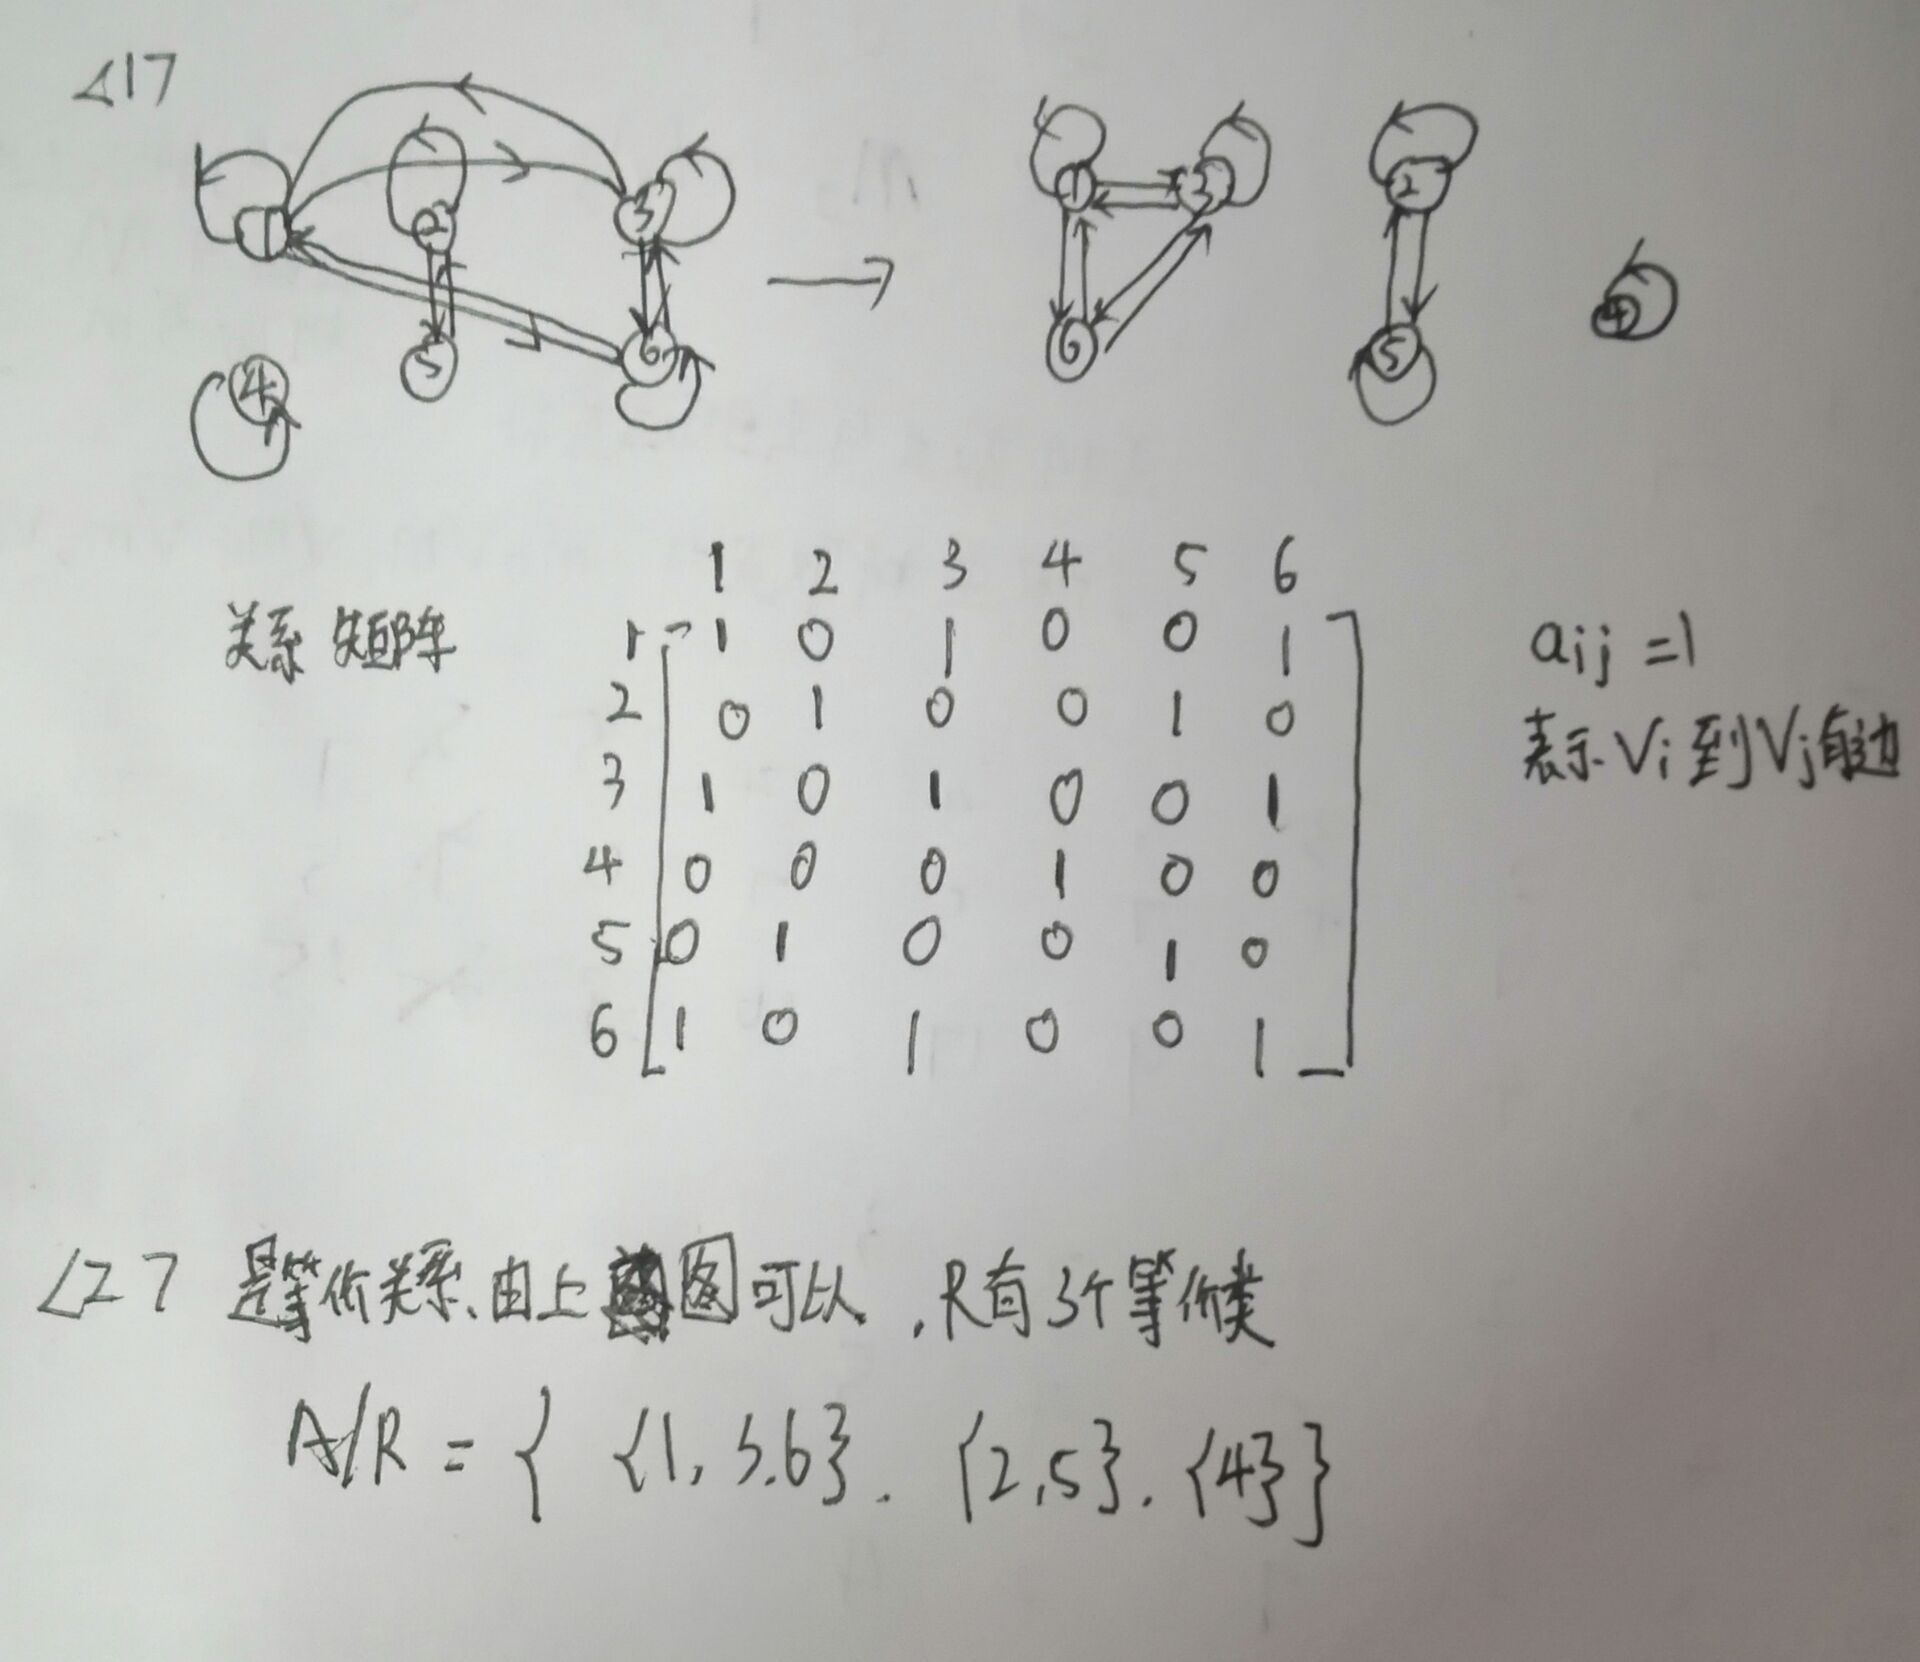 <1>
1 2 3 1 3 2
4 5 6 6 5 4
1 2 3 4 5 6
关系矩阵 1 1 0 1 0 0 1 aij =1
2 0 1 0 0 1 0 表示 Vi 到 Vj 有边
3 1 0 1 0 0 1
4 0 0 0 1 0 0
5 0 1 0 0 1 0
6 1 0 1 0 0 1
<2> 是等价关系、由上图可以,R有3个等价类
A/R = { {1,3,6}, {2,5}, {4} }